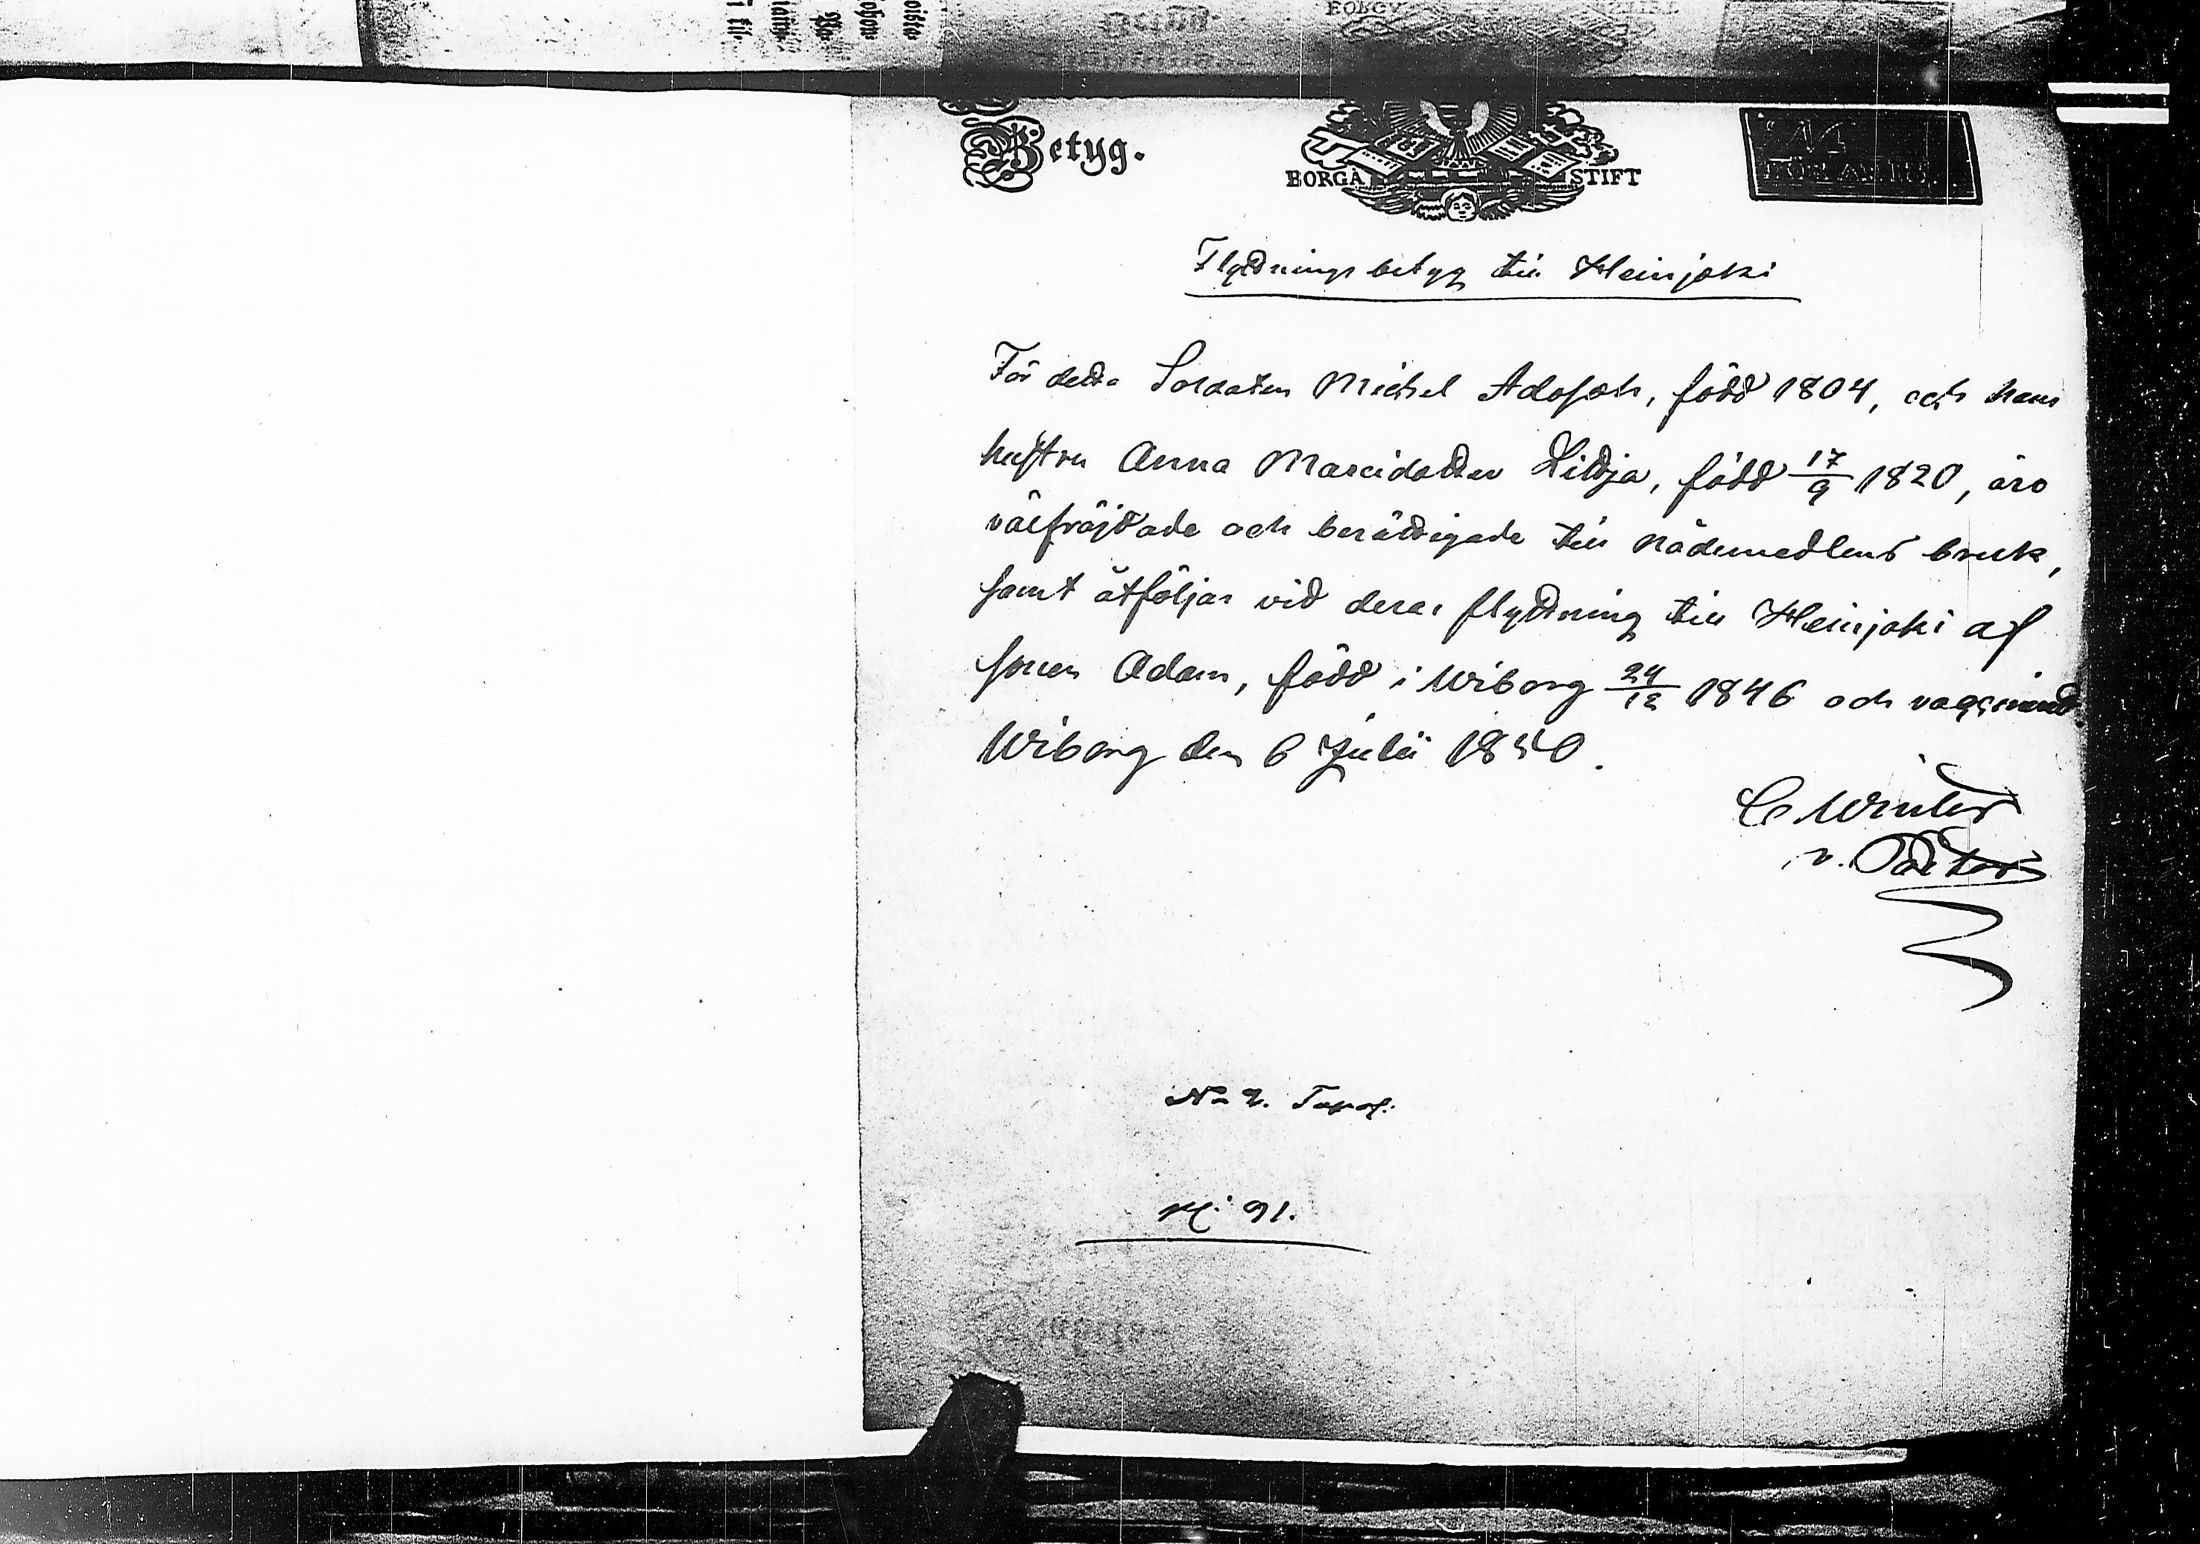 Betyg.
BORGÅ STIFT
Flyttningsbetyg till Heinjoki
För detta Soldaten Michel Adolph, född 1804, och hans
hustru Anna Marcidotter Hildja, född 17/9 1820, äro
välfräjdade och berättigade till nådemedlens bruk,
samt åtföljas vid deras flyttning till Heinjoki af
sonen Adam, född i Wiborg 24/12 1846 och vaccinerad.
Wiborg den 6 Julii 1850.
C Winter
v. Pastor
No 2.
91.